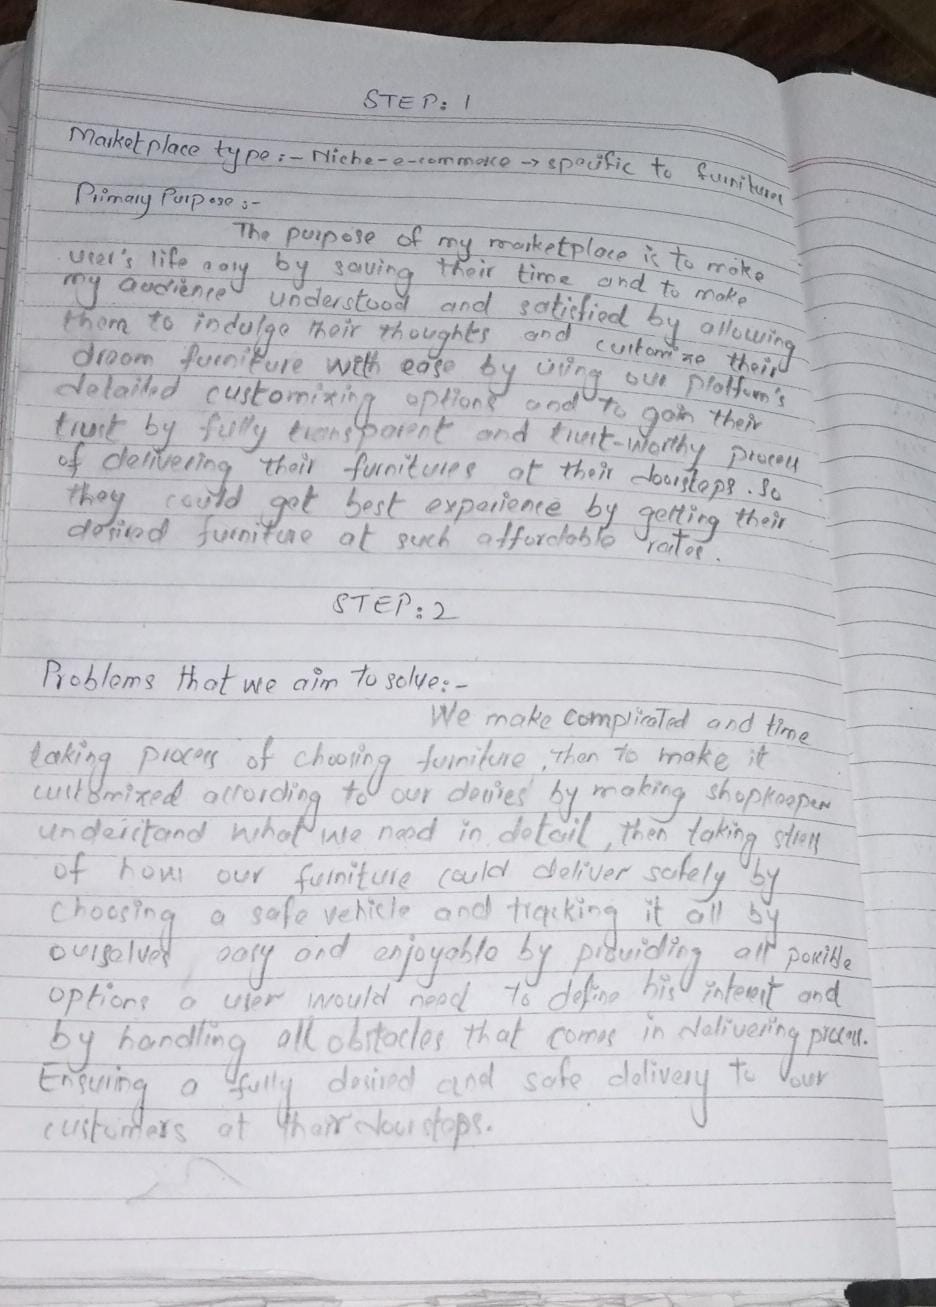 STEP: 1
Marketplace type:- Niche-e-commerce → specific to furnitures
Primary Purpose:-
The purpose of my marketplace is to make
user's life easy by saving their time and to make
my audience understood and satisfied by allowing
them to indulge their thoughts and customize their
dream furniture with ease by using our platform's
detailed customixing options and to gain their
trust by fully transparent and trust-worthy process
of delivering their furnitures at their doorsteps. So
they could get best experience by getting their
desired furniture at such affordable rates.
STEP: 2
Problems that we aim to solve:-
We make complicated and time
taking process of choosing furniture, then to make it
customixed according to our desires by making shopkeeper
understand what we need in detail, then taking stress
of how our furniture could deliver safely by
choosing a safe vehicle and tracking it all by
ourselves easy and enjoyable by providing all possible
options a user would need to define his interest and
by handling all obstacles that comes in delivering process.
Ensuring a fully desired and safe delivery to our
customers at their doorsteps.